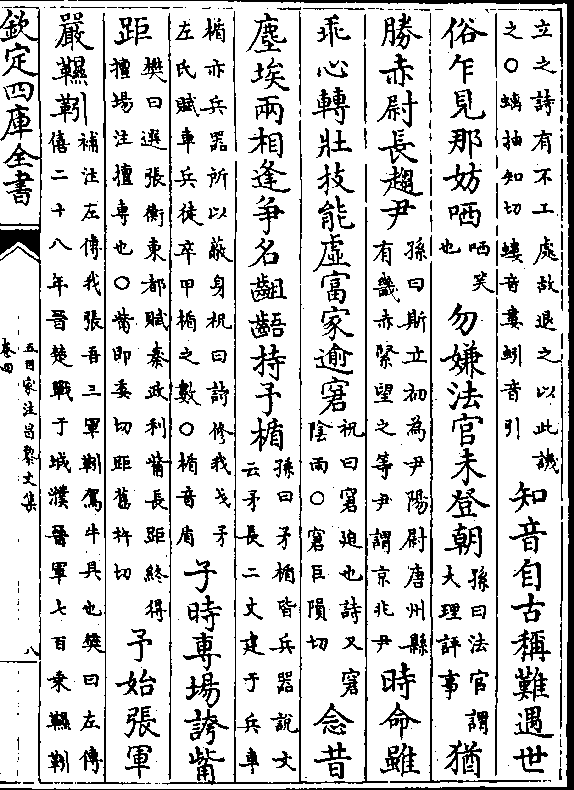 立之詩有不工處故退之以此譏
之○螭抽知切螻音婁蚓音引
知音自古稱難遇世
俗乍見那妨哂
哂笑
也
勿嫌法官未登朝
孫曰法官謂
大理評事
猶
勝赤尉長趨尹
孫曰斯立初為尹陽尉唐州縣
有畿赤緊望之等尹謂京兆尹
時命雖
乖心轉壯技能虛富家逾窘
祝曰窘迫也詩又窘
陰雨○窘巨隕切
念昔
塵埃兩相逢爭名齟齬持予楯
孫曰矛楯皆兵器說文
云矛長二丈建于兵車
楯亦兵器所以蔽身祝曰詩修我戈矛
左氏賦車兵徒卒甲楯之數○楯音盾
子時專場誇觜
距
樊曰選張衡東都賦秦政利觜長距終得
擅場注擅專也○觜即委切距舊杵切
予始張軍
嚴韅靷
補注左傳我張吾三軍靷駕牛具也樊曰左傳
僖二十八年晉楚戰于城濮晉軍七百乘韅靷
欽定四庫全書
五百家注昌黎文集
卷四
八